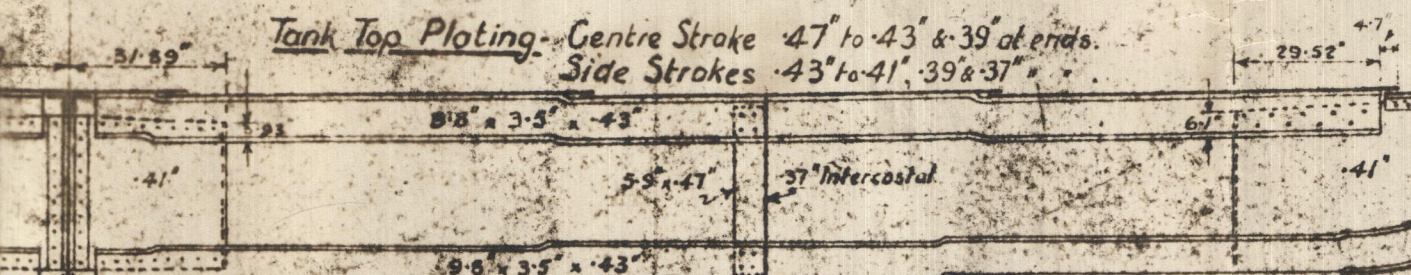 Tank Top Plating- Centre Strake ·47" to ·43" & ·39" at ends.
Side Strakes ·43" to ·41", ·39" & ·37" " "
4·7"
31·89"
29·52"
8·8" x 3·5" x ·43"
6·1"
·41"
5·9" x ·47"
·37" Intercostal
·41"
9·8" x 3·5" x ·43"